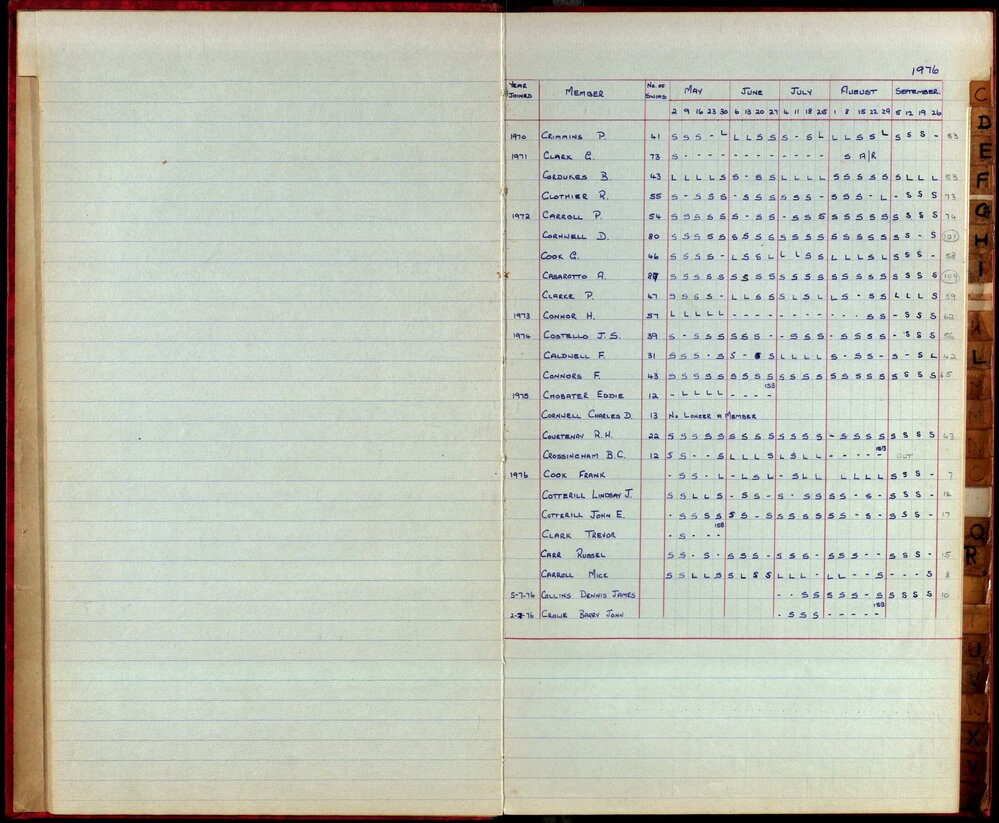 1976
YEAR JOINED MEMBER No. OF SWIMS MAY JUNE JULY AUGUST SEPTEMBER
2 9 16 23 30 6 13 20 27 4 11 18 25 1 8 15 22 29 5 12 19 26
1970 CRIMMINS P. 41 S S S - L L L S S S - S L L L S S L S S S - 53
1971 CLARK G. 73 S - - - - - - - - - - - - S A/R
CORDUKES B. 43 L L L L S S - S S L L L L S S S S S S L L L 53
CLOTHIER R. 55 S - S S S - S S S S S S - S S S - L - S S S 73
1972 CARROLL P. 54 S S S S S S - S S - S S S S S S S S S S S S 74
CORNWELL D. 80 S S S S S S S S S S S S S S S S S S S S - S 101
COOK G. 46 S S S S - L S S L L L S S L L L S L S S S - 58
CASAROTTO A. 87 S S S S S S S S S S S S S S S S S S S S S S 109
CLARKE P. 47 S S S S - L L S S S L S L L S - S S L L L S 59
1973 CONNOR H. 57 L L L L L - - - - - - - - - - - S S - S S S 62
1974 COSTELLO J. S. 39 S - S S S S S S - - S S S - S S S S - S S S 56
CALDWELL F. 31 S S S - S S - S S L L L L S - S S - S - S L 42
CONNORS F. 43 S S S S S S S S S S S S S S S S S S S S S S 65
1975 CHOBATER EDDIE 12 - L L L L - - - - 15B
CORNWELL CHARLES D. 13 NO LONGER A MEMBER
COURTENAY R. H. 22 S S S S S S S S S S S S S - S S S S S S S S 43
CROSSINGHAM B. C. 12 S S - - S L L L S L S L L - - - - - 15B OUT
1976 COOK FRANK - S S - L - L S L - S L L L L L L S S S - 7
COTTERILL LINDSAY J. S S L L S - S S - S - S S S S - S - S S S - 14
COTTERILL JOHN E. - S S S S S S - S S S S S S S - S - S S S - 17
CLARK TREVOR - S - - - 15B
CARR RUSSEL S S - S - S S S - S S S - S S S - - S S S - 15
CARROLL MICK S S L L S S L S S L L L - L L - - S - - - S 8
5-7-76 COLLINS DENNIS JAMES - - S S S S S - S S S S S 10
2-7-76 CROWE BARRY JOHN - S S S - - - - - 15B
C
D
E
F
G
H
I
K
L
N
M
N
O
Q
R
T
U
V
W
X
Y